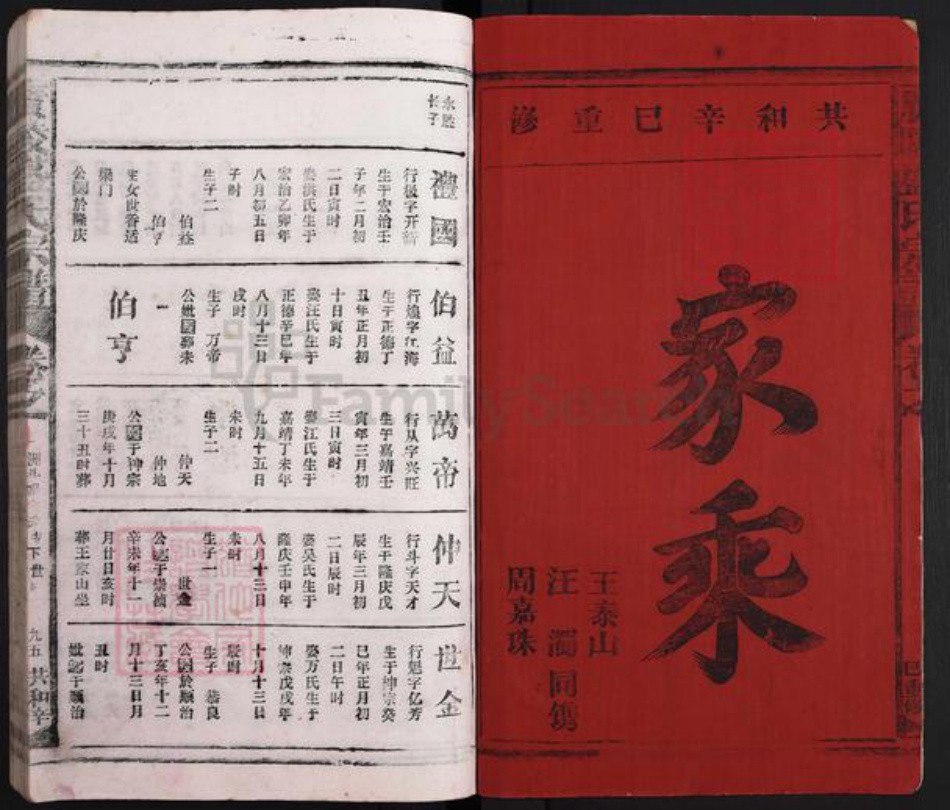 共和辛巳重修
家乘
王泰山
汪同鐫
周嘉珠
永勝
长子
禮國
行极字开
生于宏治壬
子年二月初
二日寅时
娶洪氏生于
宏治乙卯年
八月初五日
子时
生子二
伯益
伯亨
生女世香适
梁门
公於隆庆
伯益
行字江海
生于正德丁
丑年正月初
十日寅时
娶汪氏生于
正德辛巳年
八月十三日
戌时
生子 万帝
公妣葬未
一
伯亨
萬帝
行从字兴旺
生于嘉靖壬
寅年三月初
三日寅时
娶江氏生于
嘉靖丁未年
九月十五日
未时
生子二
仲天
仲地
公于神宗
庚戌年十月
三十丑时葬
仲天
行斗字天才
生于隆庆戊
辰年三月初
二日辰时
娶吴氏生于
隆庆壬申年
八月十三日
未时
生子一
世金
公于崇祯
辛未年十一
月廿日亥时
葬王家山坐
世金
行魁字亿芳
生于神宗癸
巳年正月初
二日午时
娶万氏生于
神宗戊戌年
十月十三日
辰时
生子 恭良
公於顺治
丁亥年十二
月十三日月
丑时
妣于顺治
下世
九五
共和辛
FamilySearch